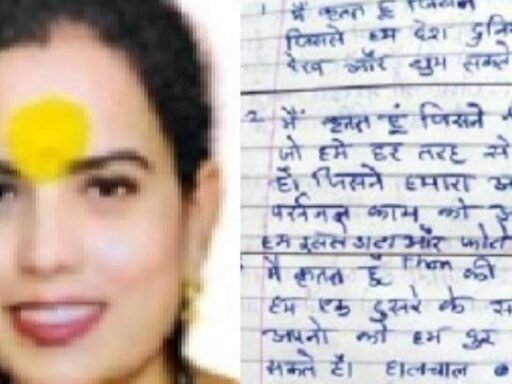 1 मैं कृतज्ञ हूं जिसने
जिससे हम देश दुनि
देख और घुम सकते
2 मैं कृतज्ञ हूं जिसने
जो हमें हर तरह से
है। जिसने हमारा
पर्सनल काम को
हम इससे डाटा और फोटो
मैं कृतज्ञ हूँ Phon की
हम एक दुसरे के
अपनो को हम
सकते है। हालचाल